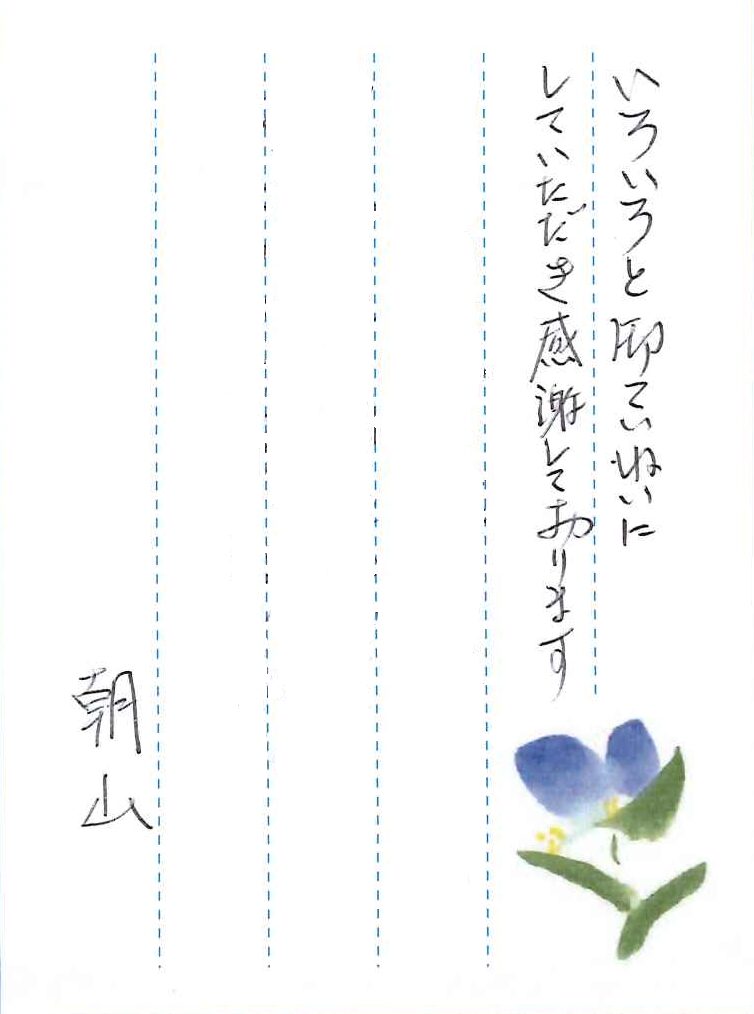 いろいろと御ていねいに
していただき感謝しております
朝山